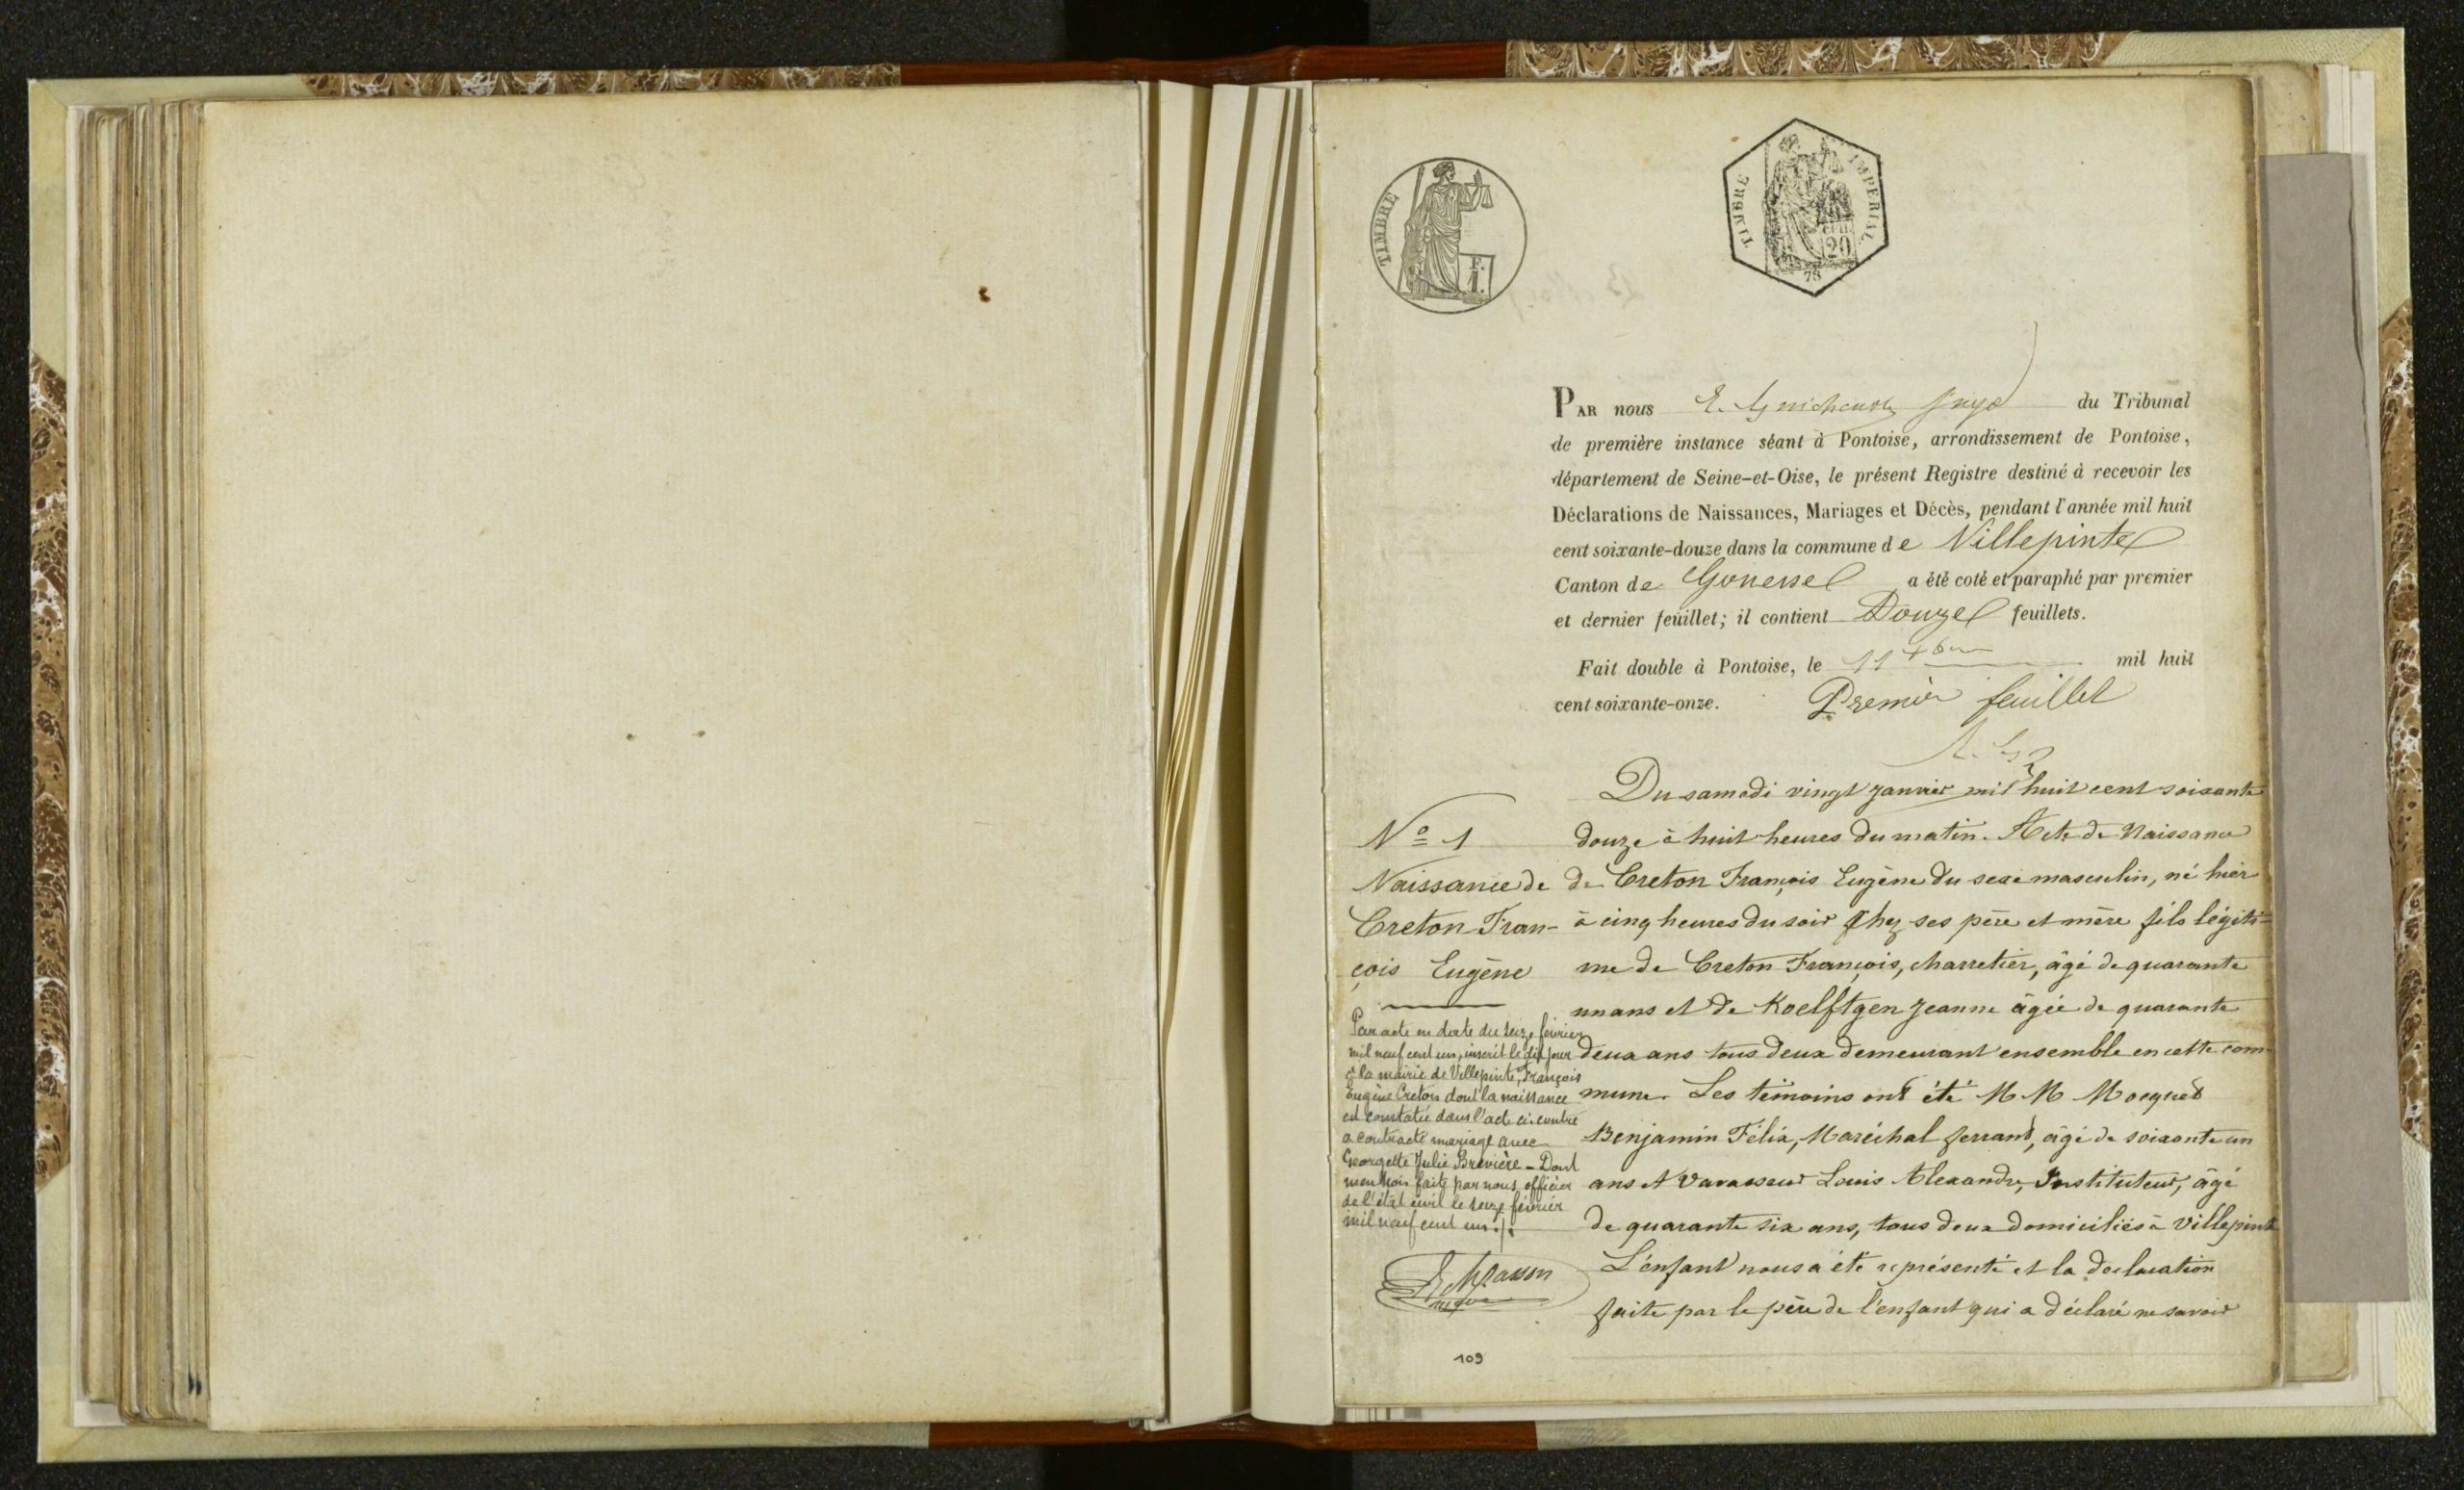 TIMBRE
F.
1.
TIMBRE IMPERIAL
20
78
PAR nous E. Juge du Tribunal
de première instance séant à Pontoise, arrondissement de Pontoise,
département de Seine-et-Oise, le présent Registre destiné à recevoir les
Déclarations de Naissances, Mariages et Décès, pendant l'année mil huit
cent soixante-douze dans la commune de Villepinte
Canton de Gonesse a été coté et paraphé par premier
et dernier feuillet; il contient Douze feuillets.
Fait double à Pontoise, le 11 mil huit
cent soixante-onze. Premier feuillet
Du samedi vingt janvier mil huit cent soixante
douze à huit heures du matin. Acte de Naissance
de Creton François Eugène du sexe masculin, né hier
à cinq heures du soir chez ses père et mère fils légiti=
me de Creton François, charretier, âgé de quarante
un ans et de Koelftgen Jeanne âgée de quarante
deux ans tous deux demeurant ensemble en cette com-
mune. Les témoins ont été M M Mocquet
Benjamin Félix, Maréchal ferrant, âgé de soixante un
ans et Vavasseur Louis Alexandre, Instituteur, âgé
de quarante six ans, tous deux domiciliés à Villepinte
L'enfant nous a été représenté et la déclaration
faite par le père de l'enfant qui a déclaré ne savoir
No 1
Naissance de
Creton Fran-
çois Eugène
Par acte en date du seize février
mil neuf cent un, inscrit le dit jour
à la mairie de Villepinte, François
Eugène Creton dont la naissance
est constatée dans l'acte ci-contre
a contracté mariage avec
Georgette Julie Brevière - Dont
mention faite par nous officier
de l'état civil le seize février
mil neuf cent un ./.
Masson
109